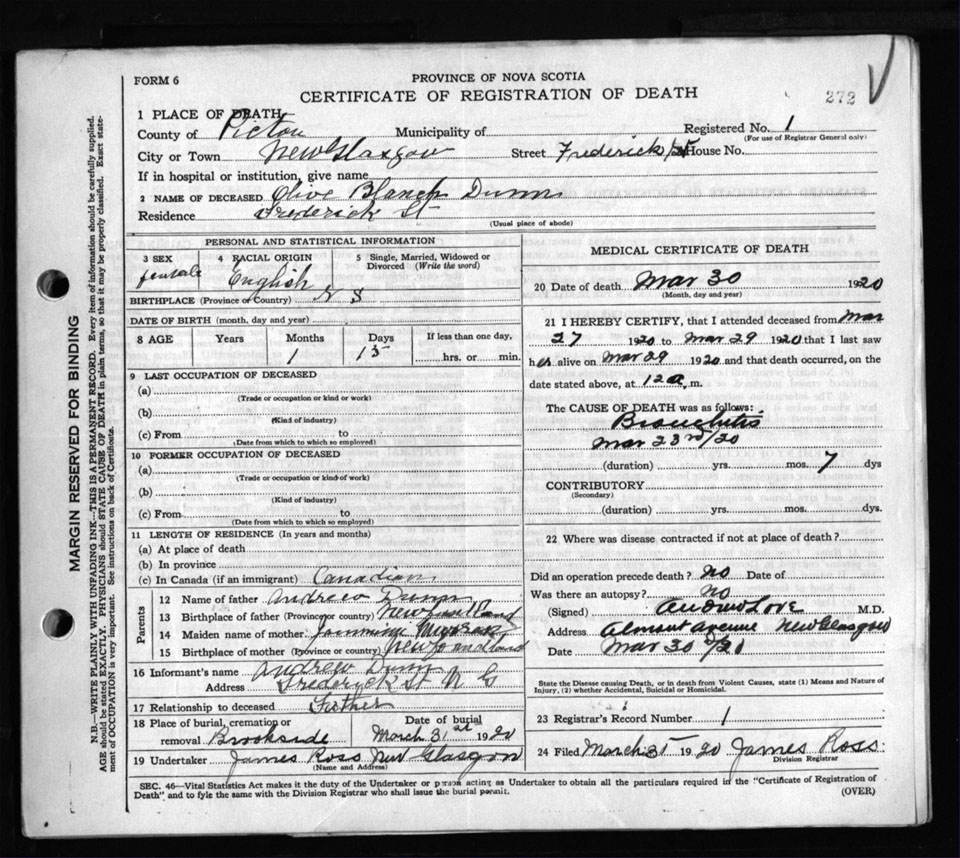 FORM 6
PROVINCE OF NOVA SCOTIA
CERTIFICATE OF REGISTRATION OF DEATH
272
1 PLACE OF DEATH
County of Pictou Municipality of Registered No. 1
(For use of Registrar General only)
City or Town New Glasgow Street Frederick St House No.
If in hospital or institution, give name
2 NAME OF DECEASED Olive Blanch Dunn
Residence Frederick St
(Usual place of abode)
PERSONAL AND STATISTICAL INFORMATION
3 SEX 4 RACIAL ORIGIN 5 Single, Married, Widowed or Divorced (Write the word)
female English
BIRTHPLACE (Province or Country) N S
DATE OF BIRTH (month, day and year)
8 AGE Years Months Days If less than one day,
1 15 hrs. or min.
9 LAST OCCUPATION OF DECEASED
(a)
(Trade or occupation or kind or work)
(b)
(Kind of industry)
(c) From to
(Date from which to which so employed)
10 FORMER OCCUPATION OF DECEASED
(a)
(Trade or occupation or kind of work)
(b)
(Kind of industry)
(c) From to
(Date from which to which so employed)
11 LENGTH OF RESIDENCE (In years and months)
(a) At place of death
(b) In province
(c) In Canada (if an immigrant) Canadian
Parents
12 Name of father Andrew Dunn
13 Birthplace of father (Province or country) Newfoundland
14 Maiden name of mother
15 Birthplace of mother (Province or country) Newfoundland
16 Informant's name Andrew Dunn
Address Frederyck St N G
17 Relationship to deceased Father
18 Place of burial, cremation or removal Brookside Date of burial March 31st 1920
19 Undertaker James Ross New Glasgow
(Name and Address)
MEDICAL CERTIFICATE OF DEATH
20 Date of death Mar 30 1920
(Month, day and year)
21 I HEREBY CERTIFY, that I attended deceased from Mar
27 1920 to Mar 29 1920 that I last saw
her alive on Mar 29 1920 and that death occurred, on the
date stated above, at 12 a. m.
The CAUSE OF DEATH was as follows:
Bronchitis
Mar 23rd/20
(duration) yrs. mos. 7 dys
CONTRIBUTORY
(Secondary)
(duration) yrs. mos. dys.
22 Where was disease contracted if not at place of death?
Did an operation precede death? No Date of
Was there an autopsy? no
(Signed) Andrew Love M.D.
Address Almont Avenue New Glasgow
Date Mar 30
State the Disease causing Death, or in death from Violent Causes, state (1) Means and Nature of Injury, (2) whether Accidental, Suicidal or Homicidal.
23 Registrar's Record Number 1
24 Filed March 31 1920 James Ross
Division Registrar
SEC. 46—Vital Statistics Act makes it the duty of the Undertaker or person acting as Undertaker to obtain all the particulars required in the "Certificate of Registration of
Death" and to fyle the same with the Division Registrar who shall issue the burial permit. (OVER)
MARGIN RESERVED FOR BINDING
N.B.—WRITE PLAINLY WITH UNFADING INK—THIS IS A PERMANENT RECORD. Every item of information should be carefully supplied.
AGE should be stated EXACTLY. PHYSICIANS should STATE CAUSE OF DEATH in plain terms, so that it may be properly classified. Exact statement of OCCUPATION is very important. See instructions on back of Certificate.